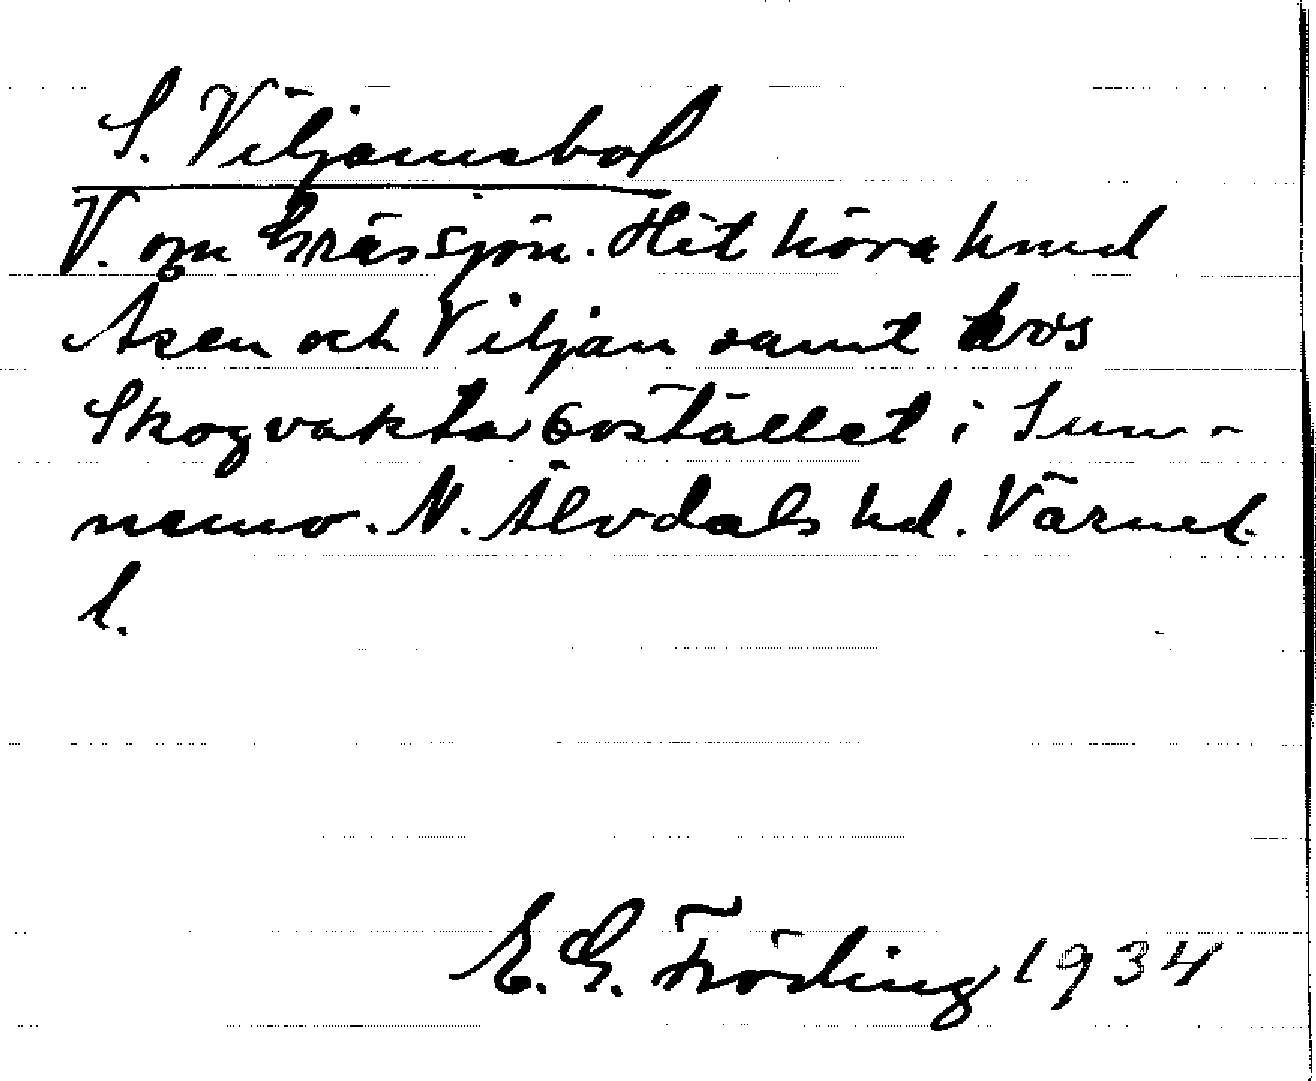 S. Viljamsbol
V. om Grässjön. Hit höra hmd
Åsen och Viljan samt kvs
Skogvaktarbostället i Sun-
nemo. N. Älvdals hd. Värmel.
l.
E. G. Fröding 1934